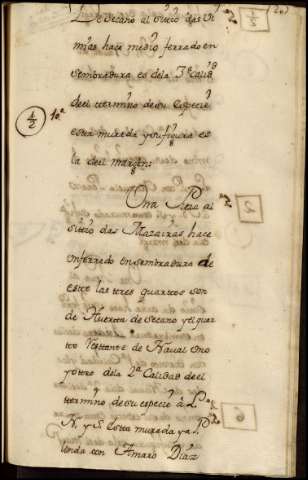 De secano al sitio das Vi
mias hace medio ferrado en
sembradura es dela 3ª Calidᵈ
del termino de su especie
esta murada y su figura es
la del margen:
10ª
Una Pieza al
sitio das Mazairas, hace
un ferrado en sembradura de
este las tres quartos son
de Huerta de secano y el quar
to restante de Naval Uno
y otro dela 2ª Calidad del
termino de su especie à Lᵗᵉ
N. y S. esta murada y a Pᵗᵉ
linda con Amaro Diaz
2
6